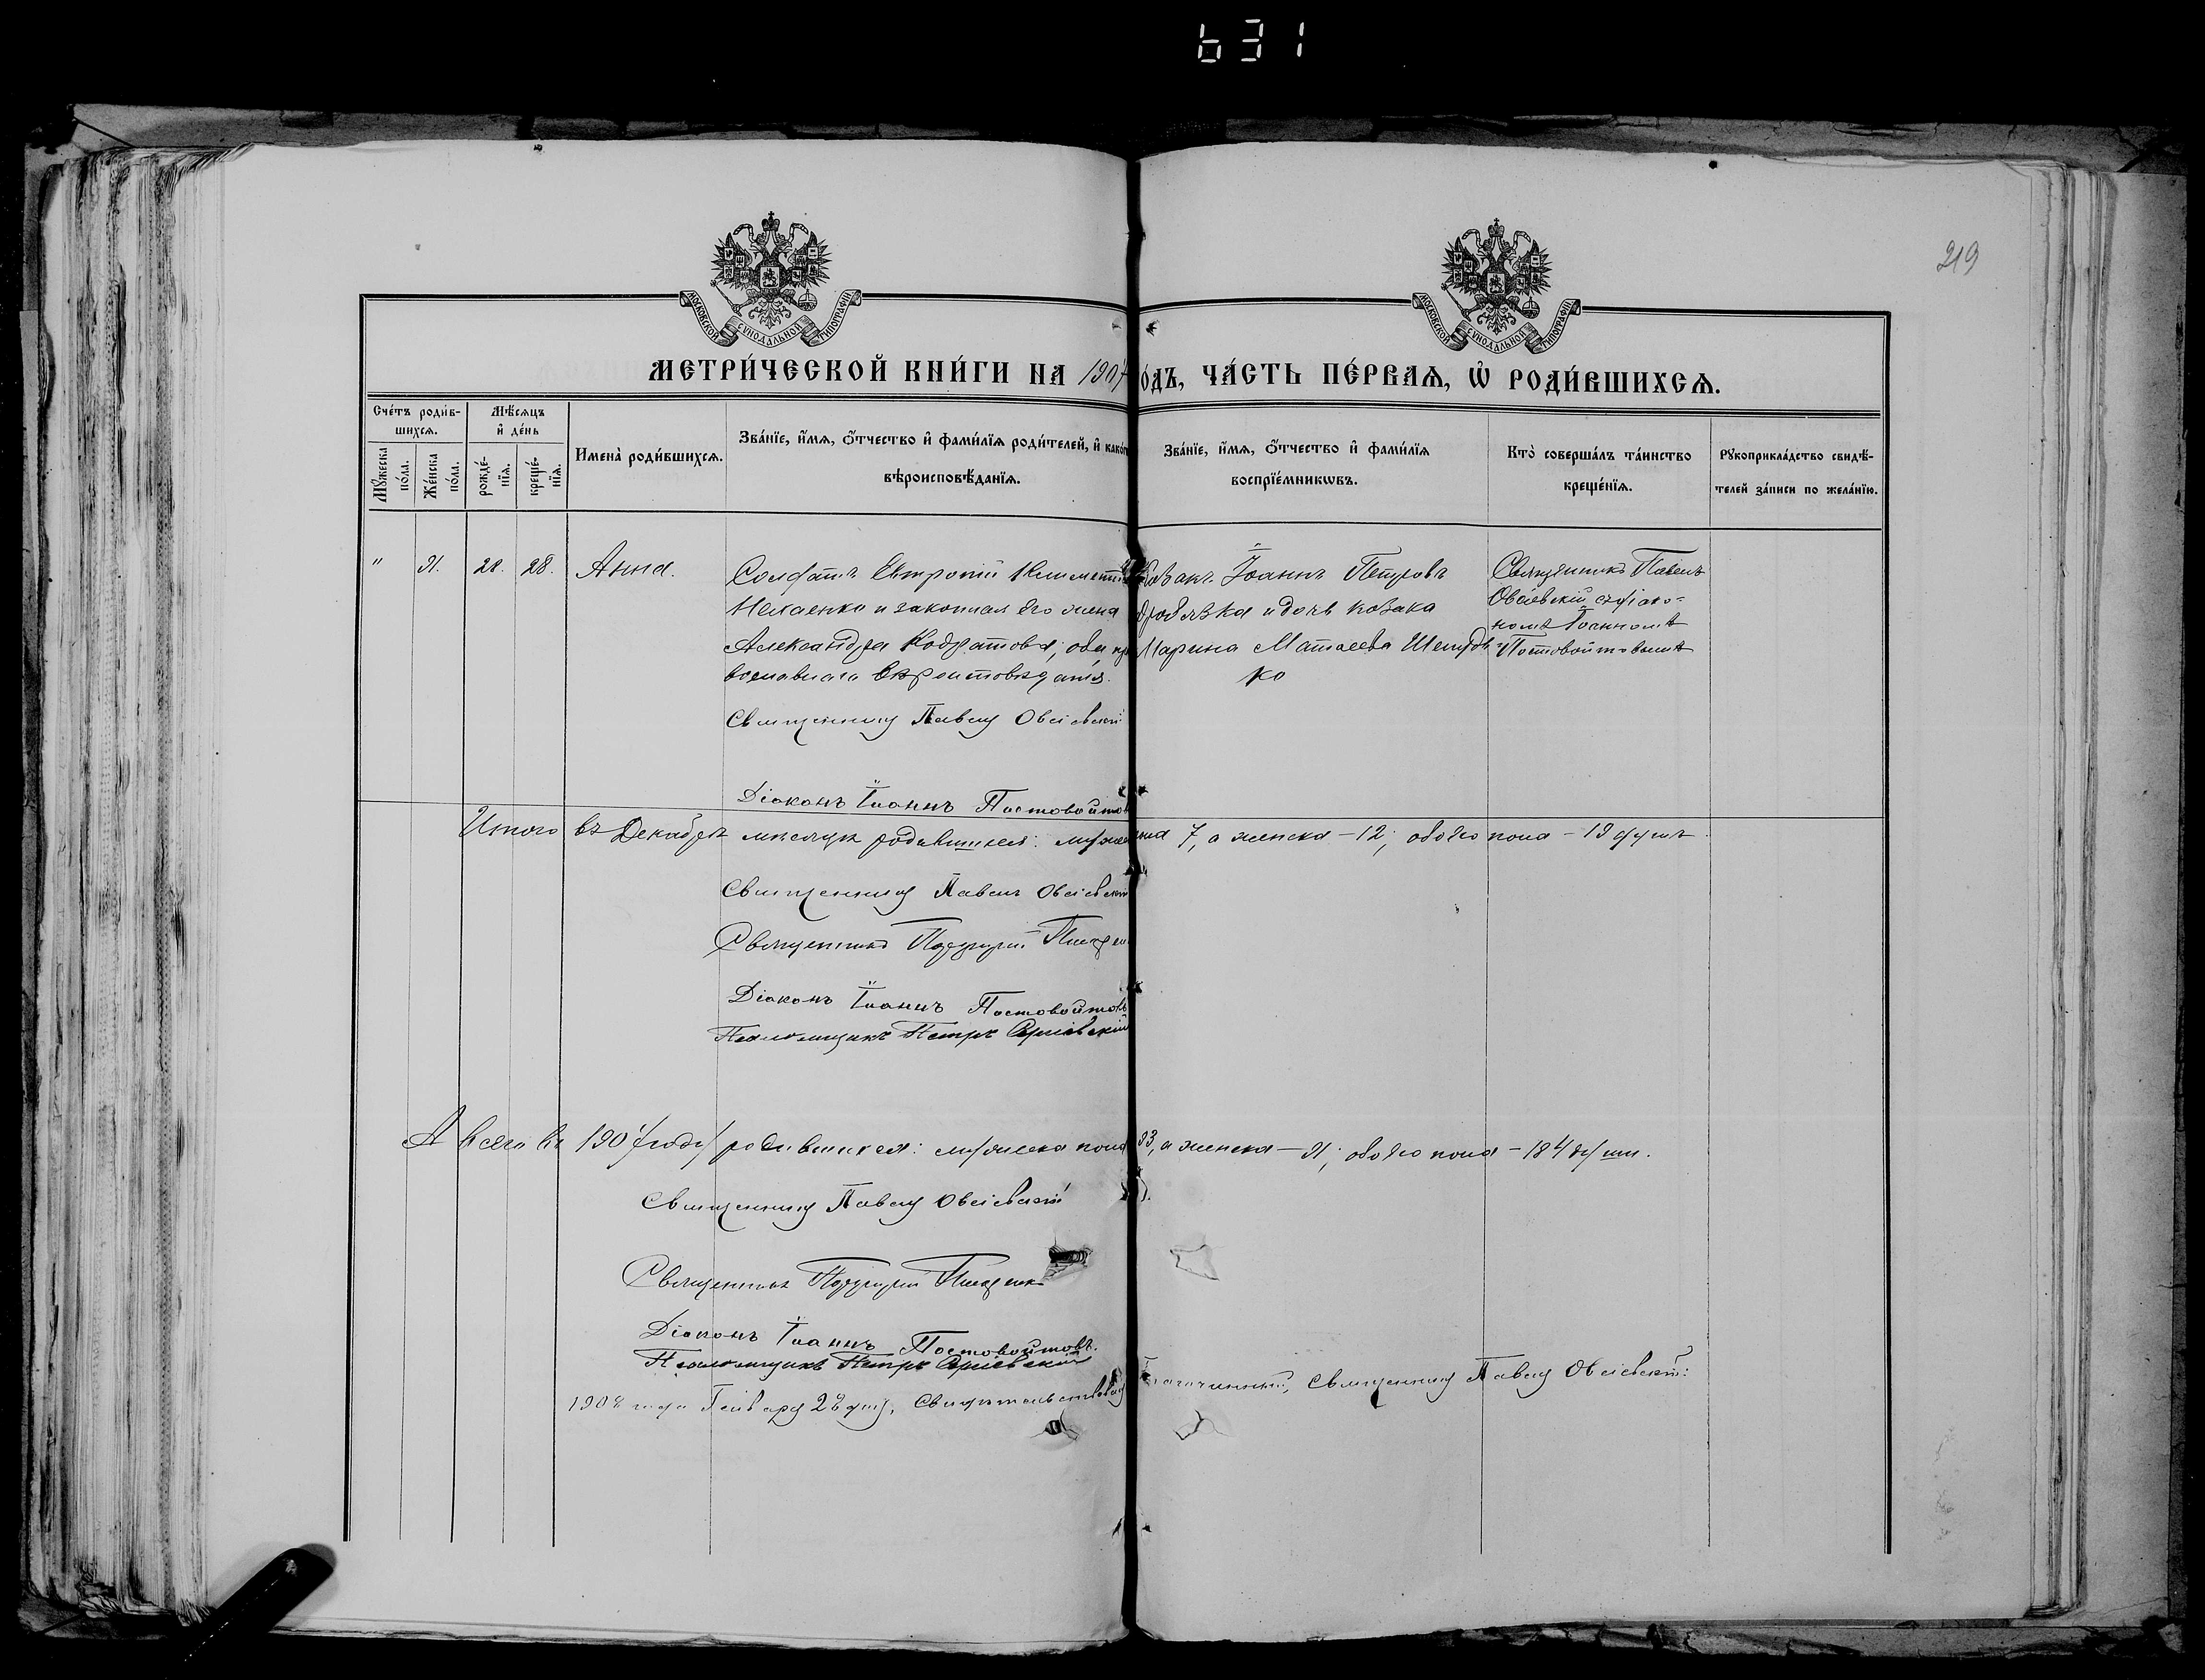 631
219
МОСКОВСКОЙ СѴНОДАЛЬНОЙ ТИПОГРАФІИ
МОСКОВСКОЙ СѴНОДАЛЬНОЙ ТИПОГРАФІИ
МЕТРИ́ЧЕСКОЙ КНИ́ГИ НА 1907 О́ДЪ, ЧА́СТЬ ПЕ́РВАѦ, Ѡ҆ РОДИ́ВШИХСѦ.
Сче́тъ роди́в-
шихсѧ.
Мꙋ́жеска по́ла.
Же́нска по́ла.
Мѣ́сѧцъ
и҆ де́нь
рожде́-нїѧ.
креще́-нїѧ.
Имена̀ роди́вшихсѧ.
Зва́нїе, и҆́мѧ, ѻ҆́тчество и҆ фами́лїѧ роди́телей, и҆ како́г
вѣроисповѣ́данїѧ.
Зва́нїе, и҆́мѧ, ѻ҆́тчество и҆ фами́лїѧ
воспрїе́мникѡвъ.
Кто̀ соверша́лъ та́инство
креще́нїѧ.
Рꙋкоприкла́дство свидѣ́-
телей за́писи по жела́нїю.
" 91. 28. 28. Анна.
Солдатъ Евтропій
и законная его жена
Александра Кодратова; оба пра
вославнаго вѣроисповѣданія.
Священникъ Павелъ Овсіевскій
Діаконъ Іоаннъ Постовойтов
Козакъ Іоаннъ Петровъ
и дочь козака
Марина Матѳеева
ко
Священникъ Павелъ
Овсіевскій съ діако-
номъ Іоанномъ
Постовойтовымъ
Итого въ Декабрѣ мѣсяцѣ родившихся: мужеска пола 7, а женска – 12; обоего пола – 19 душъ.
Священникъ Павелъ Овсіевскій
Священникъ
Діаконъ Іоаннъ Постовойтовъ
Псаломщикъ Петръ
А всего въ 1907 году родившихся: мужеска пола 93, а женска – 91; обоего пола – 184 души.
Священникъ Павелъ Овсіевскій
Священникъ
Діаконъ Іоаннъ Постовойтовъ.
Псаломщикъ Петръ
1908 года Генваря 28 дня, Свидѣтельствовалъ Благочинный, Священникъ Павелъ Овсіевскій: